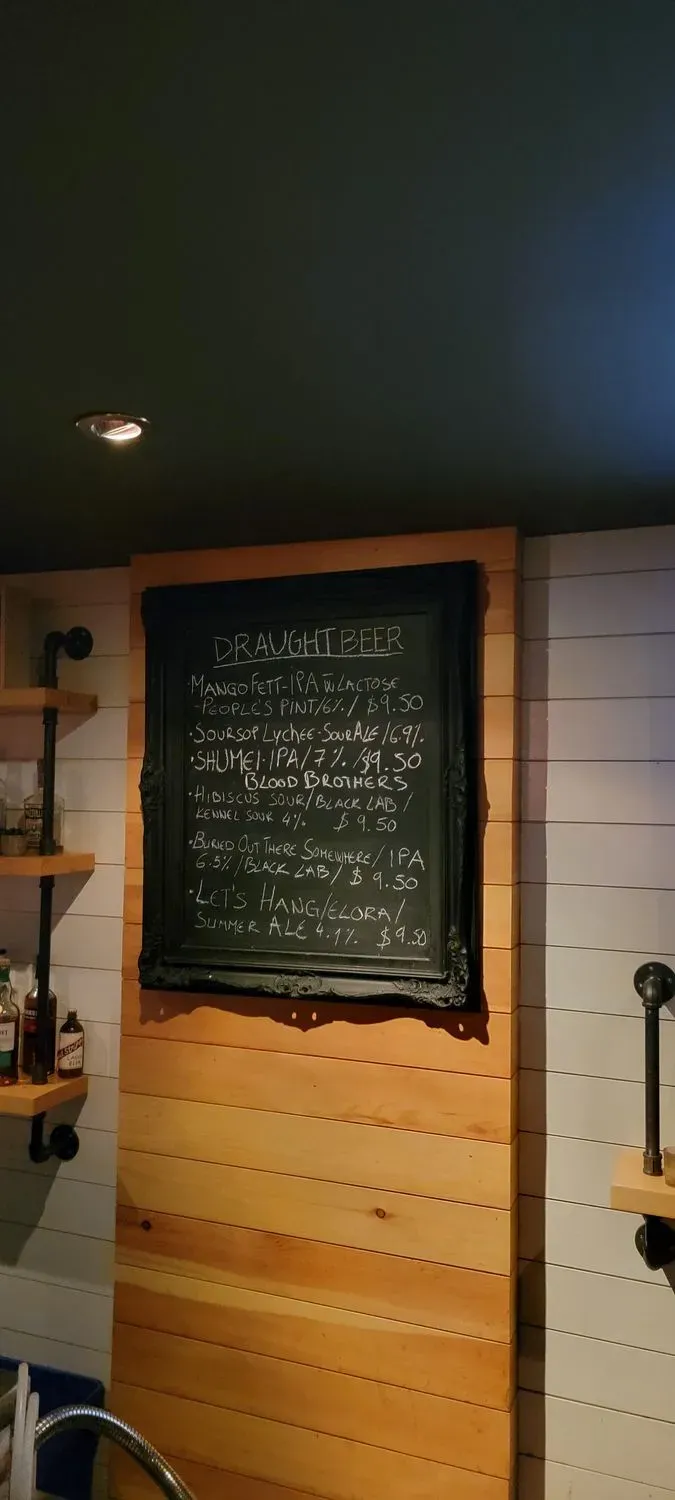 DRAUGHT BEER
· MANGO FETT - IPA W LACTOSE
- PEOPLE'S PINT / 6% / $9.50
· SOURSOP LYCHEE - SOUR ALE / 6.9%
· SHUMEI · IPA / 7% / $9.50
BLOOD BROTHERS
· HIBISCUS SOUR / BLACK LAB /
KENNEL SOUR 4% $9.50
· BURIED OUT THERE SOMEWHERE / IPA
6.5% / BLACK LAB / $9.50
· LET'S HANG / ELORA /
SUMMER ALE 4.1% $9.50